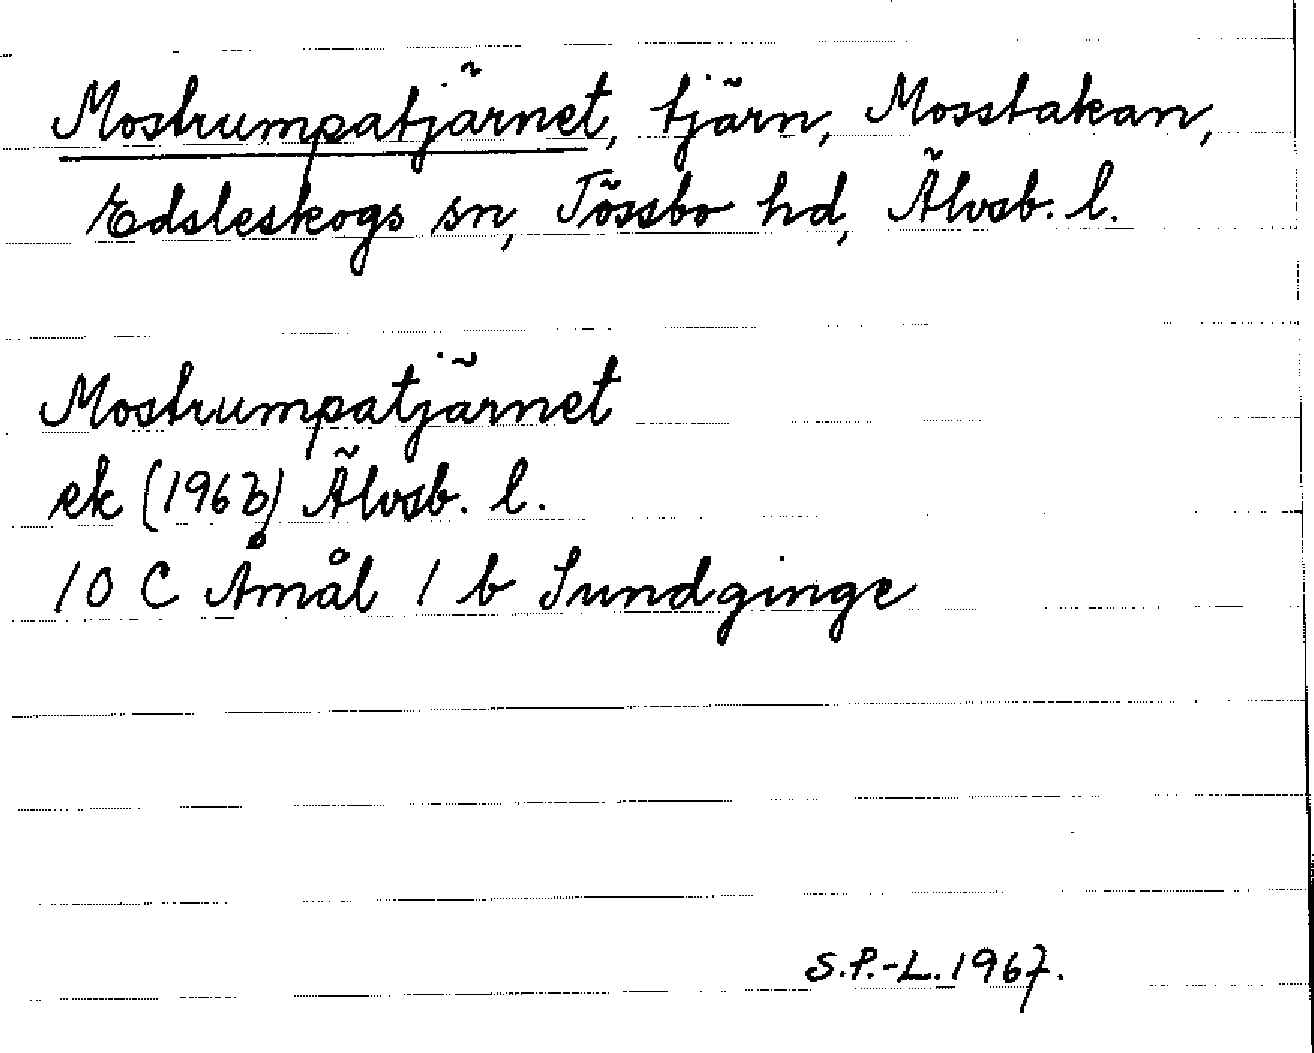 Mostrumpatjärnet, tjärn, Mosstakan,
Edsleskogs sn, Tössbo hd, Älvsb. l.
Mostrumpatjärnet
ek (1963) Älvsb. l.
10 C Åmål 1 b Sundginge
S.P.-L. 1967.